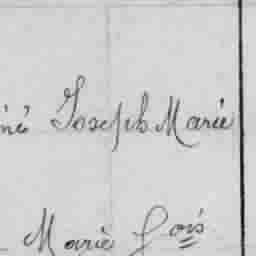 Joseph Marie
Marie fois